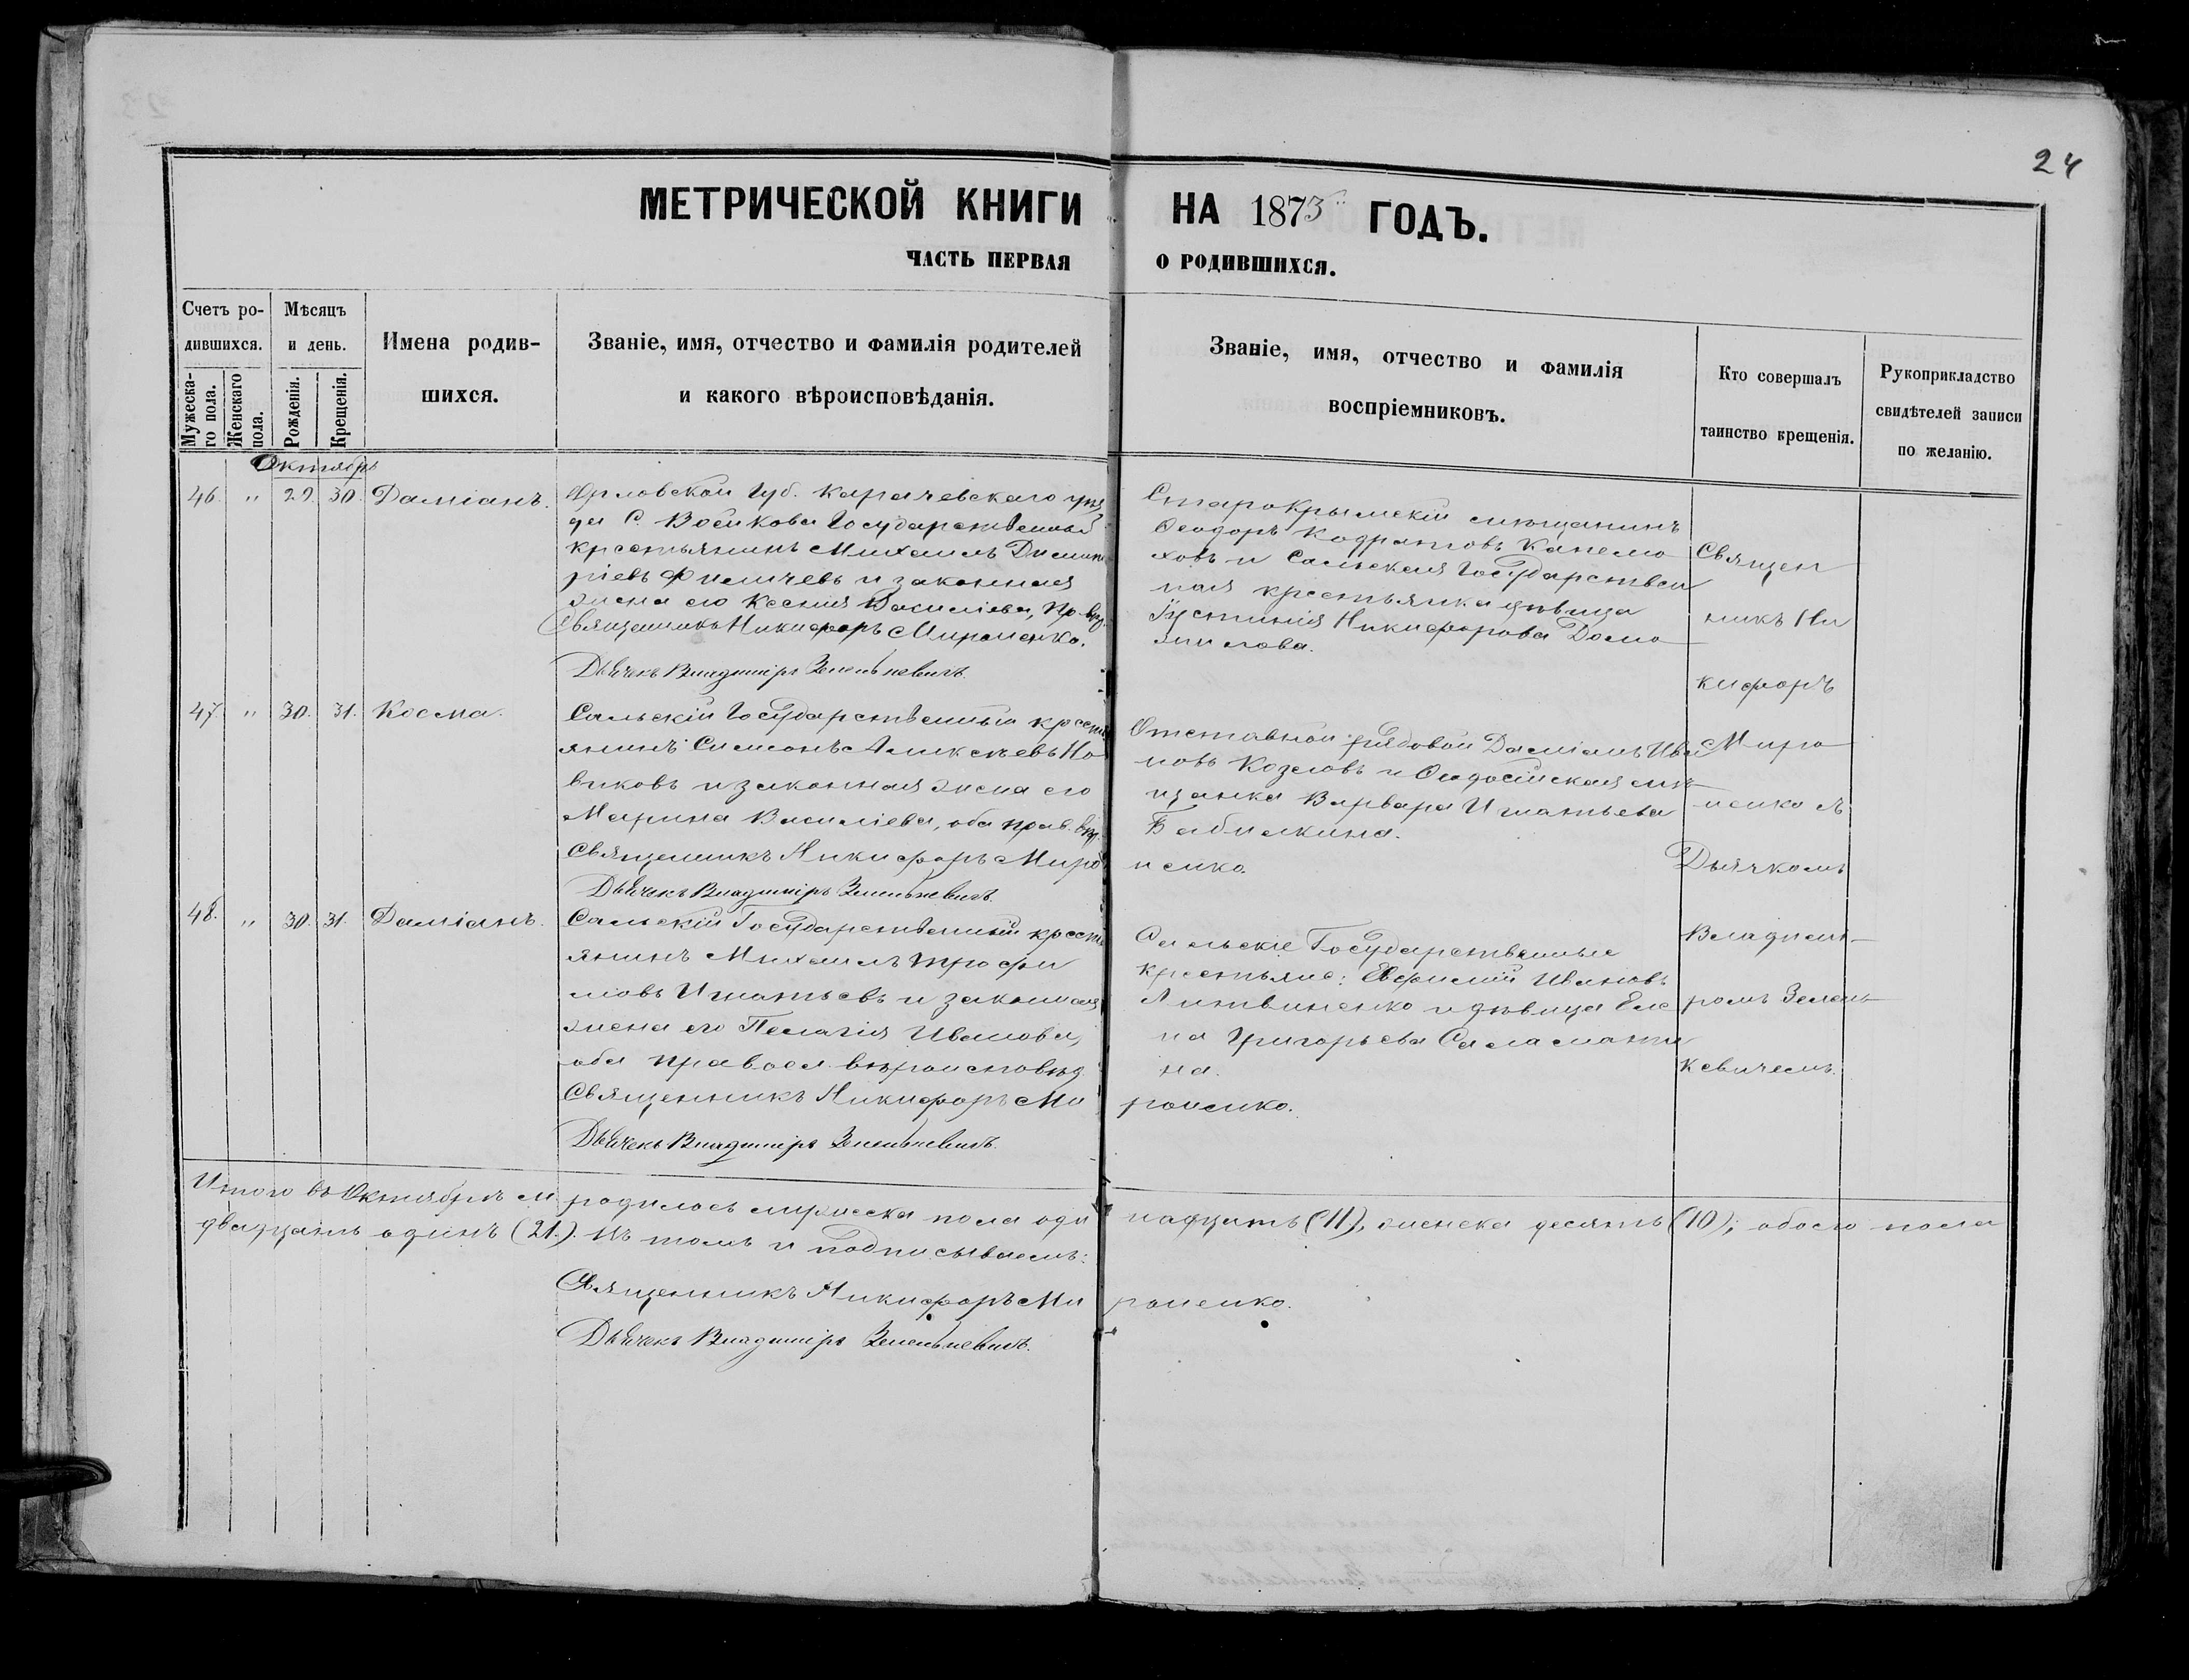 24
МЕТРИЧЕСКОЙ КНИГИ НА 1873 ГОДЪ.
ЧАСТЬ ПЕРВАЯ О РОДИВШИХСЯ.
Счетъ ро-
дившихся.
Мужеска-
го пола.
Женскаго
пола.
Мѣсяцъ
и день.
Рожденія.
Крещенія.
Имена родив-
шихся.
Званіе, имя, отчество и фамилія родителей
и какого вѣроисповѣданія.
Званіе, имя, отчество и фамилія
воспріемниковъ.
Кто совершалъ
таинство крещенія.
Рукоприкладство
свидѣтелей записи
по желанію.
Октябрь
46. " 29. 30. Даміанъ.
Орловской Губ. Карачевскаго уѣз
да С. Воейкова Государственный
крестьянинъ Михаилъ Димит
ріевъ и законная
жена его Ксенія Василіева, пр. вѣр.
Священникъ Никифоръ Мироненко.
Дьячекъ Владиміръ Зеленкевичъ.
СтароКрымскій мѣщанинъ
Ѳеодоръ Кодратовъ
ховъ и Сальская Государствен
ная крестьянка дѣвица
Іустинія Никифорова Домо
жилова.
47. " 30. 31. Косма.
Сальскій Государственный кресть
янинъ Симеонъ Алексѣевъ Но
виковъ и законная жена его
Марина Василіева, оба прав. вѣр.
Священникъ Никифоръ Миро
ненко.
Дьячекъ Владиміръ Зеленкевичъ.
Отставной рядовой Даміанъ Ива
новъ Козловъ и Ѳеодосійская мѣ
щанка Варвара Игнатьева
Бабилкина.
48. " 30. 31. Даміанъ.
Сальскій Государственный кресть
янинъ Михаилъ Трофи
мовъ Игнатьевъ и законная
жена его Пелагія Иванова,
оба правосл. вѣроисповѣд.
Священникъ Никифоръ Ми
роненко.
Дьячекъ Владиміръ Зеленкевичъ.
Сальскіе Государственные
крестьяне: Евфимій Ивановъ
Литвиненко и дѣвица Еле
на Григорьева Саламати
на.
Священ
никъ Ни
кифоръ
Миро
ненко съ
Дьячкомъ
Владимі-
ромъ Зелен-
кевичемъ.
Итого въ Октябрѣ м. родилось мужеска пола оди надцать (11), женска десять (10); обоего пола
двадцать одинъ (21.). Въ томъ и подписываемъ:
Священникъ Никифоръ Ми роненко.
Дьячекъ Владиміръ Зеленкевичъ.